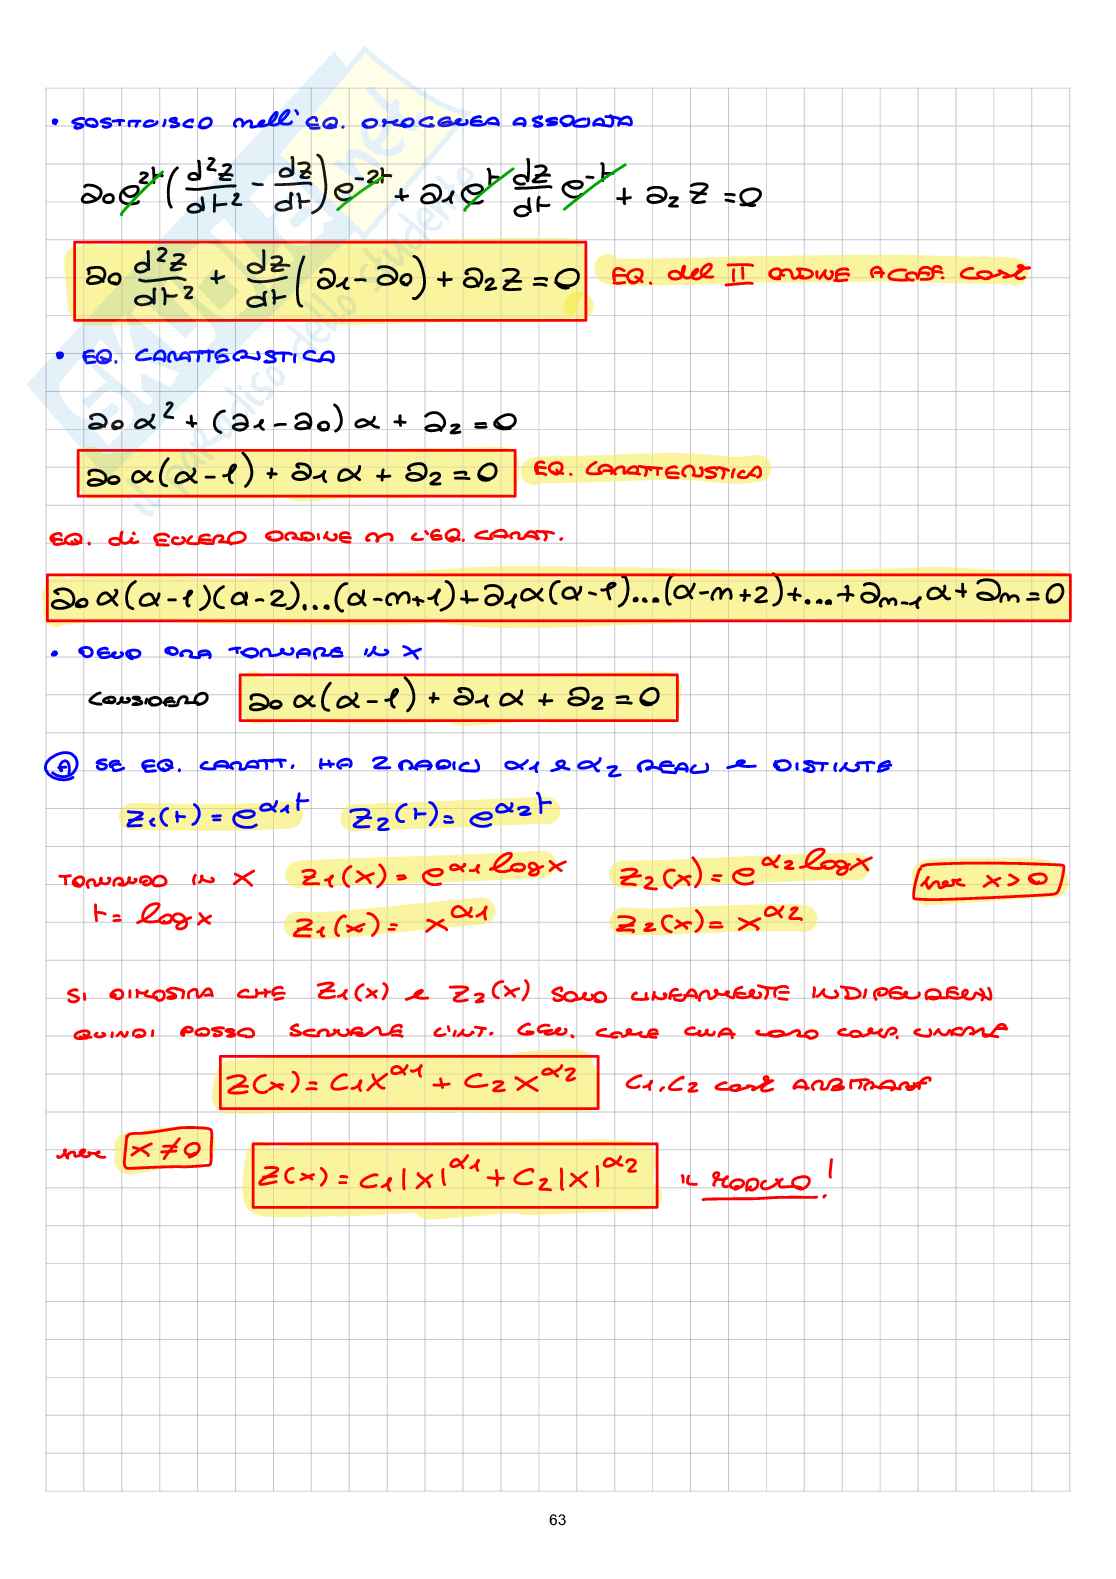 • SOSTITUISCO nell' EQ. OMOGENEA ASSOCIATA
a₀ e^{2t} ( d²z/dt² - dz/dt ) e^{-2t} + a₁ e^{t} dz/dt e^{-t} + a₂ z = 0
a₀ d²z/dt² + dz/dt ( a₁ - a₀ ) + a₂ z = 0 EQ. del II ORDINE A COEF. COST
• EQ. CARATTERISTICA
a₀ α² + (a₁ - a₀) α + a₂ = 0
a₀ α(α-1) + a₁ α + a₂ = 0 EQ. CARATTERISTICA
EQ. di EULERO ORDINE n L'EQ. CARAT.
a₀ α(α-1)(α-2)...(α-n+1) + a₁ α(α-1)...(α-n+2) + ... + a_{n-1} α + a_n = 0
• DEVO ORA TORNARE IN X
CONSIDERO a₀ α(α-1) + a₁ α + a₂ = 0
Ⓐ SE EQ. CARATT. HA 2 RADICI α₁ e α₂ REALI e DISTINTE
z₁(t) = e^{α₁t} z₂(t) = e^{α₂t}
TORNANDO IN X z₁(x) = e^{α₁ log x} z₂(x) = e^{α₂ log x} per x > 0
t = log x z₁(x) = x^{α₁} z₂(x) = x^{α₂}
SI DIMOSTRA CHE z₁(x) e z₂(x) SONO LINEARMENTE INDIPENDENTI
QUINDI POSSO SCRIVERE L'INT. GEN. COME UNA LORO COMB. LINEARE
z(x) = C₁ x^{α₁} + C₂ x^{α₂} C₁, C₂ cost ARBITRARIE
per x ≠ 0 z(x) = C₁ |x|^{α₁} + C₂ |x|^{α₂} IL MODULO!
63